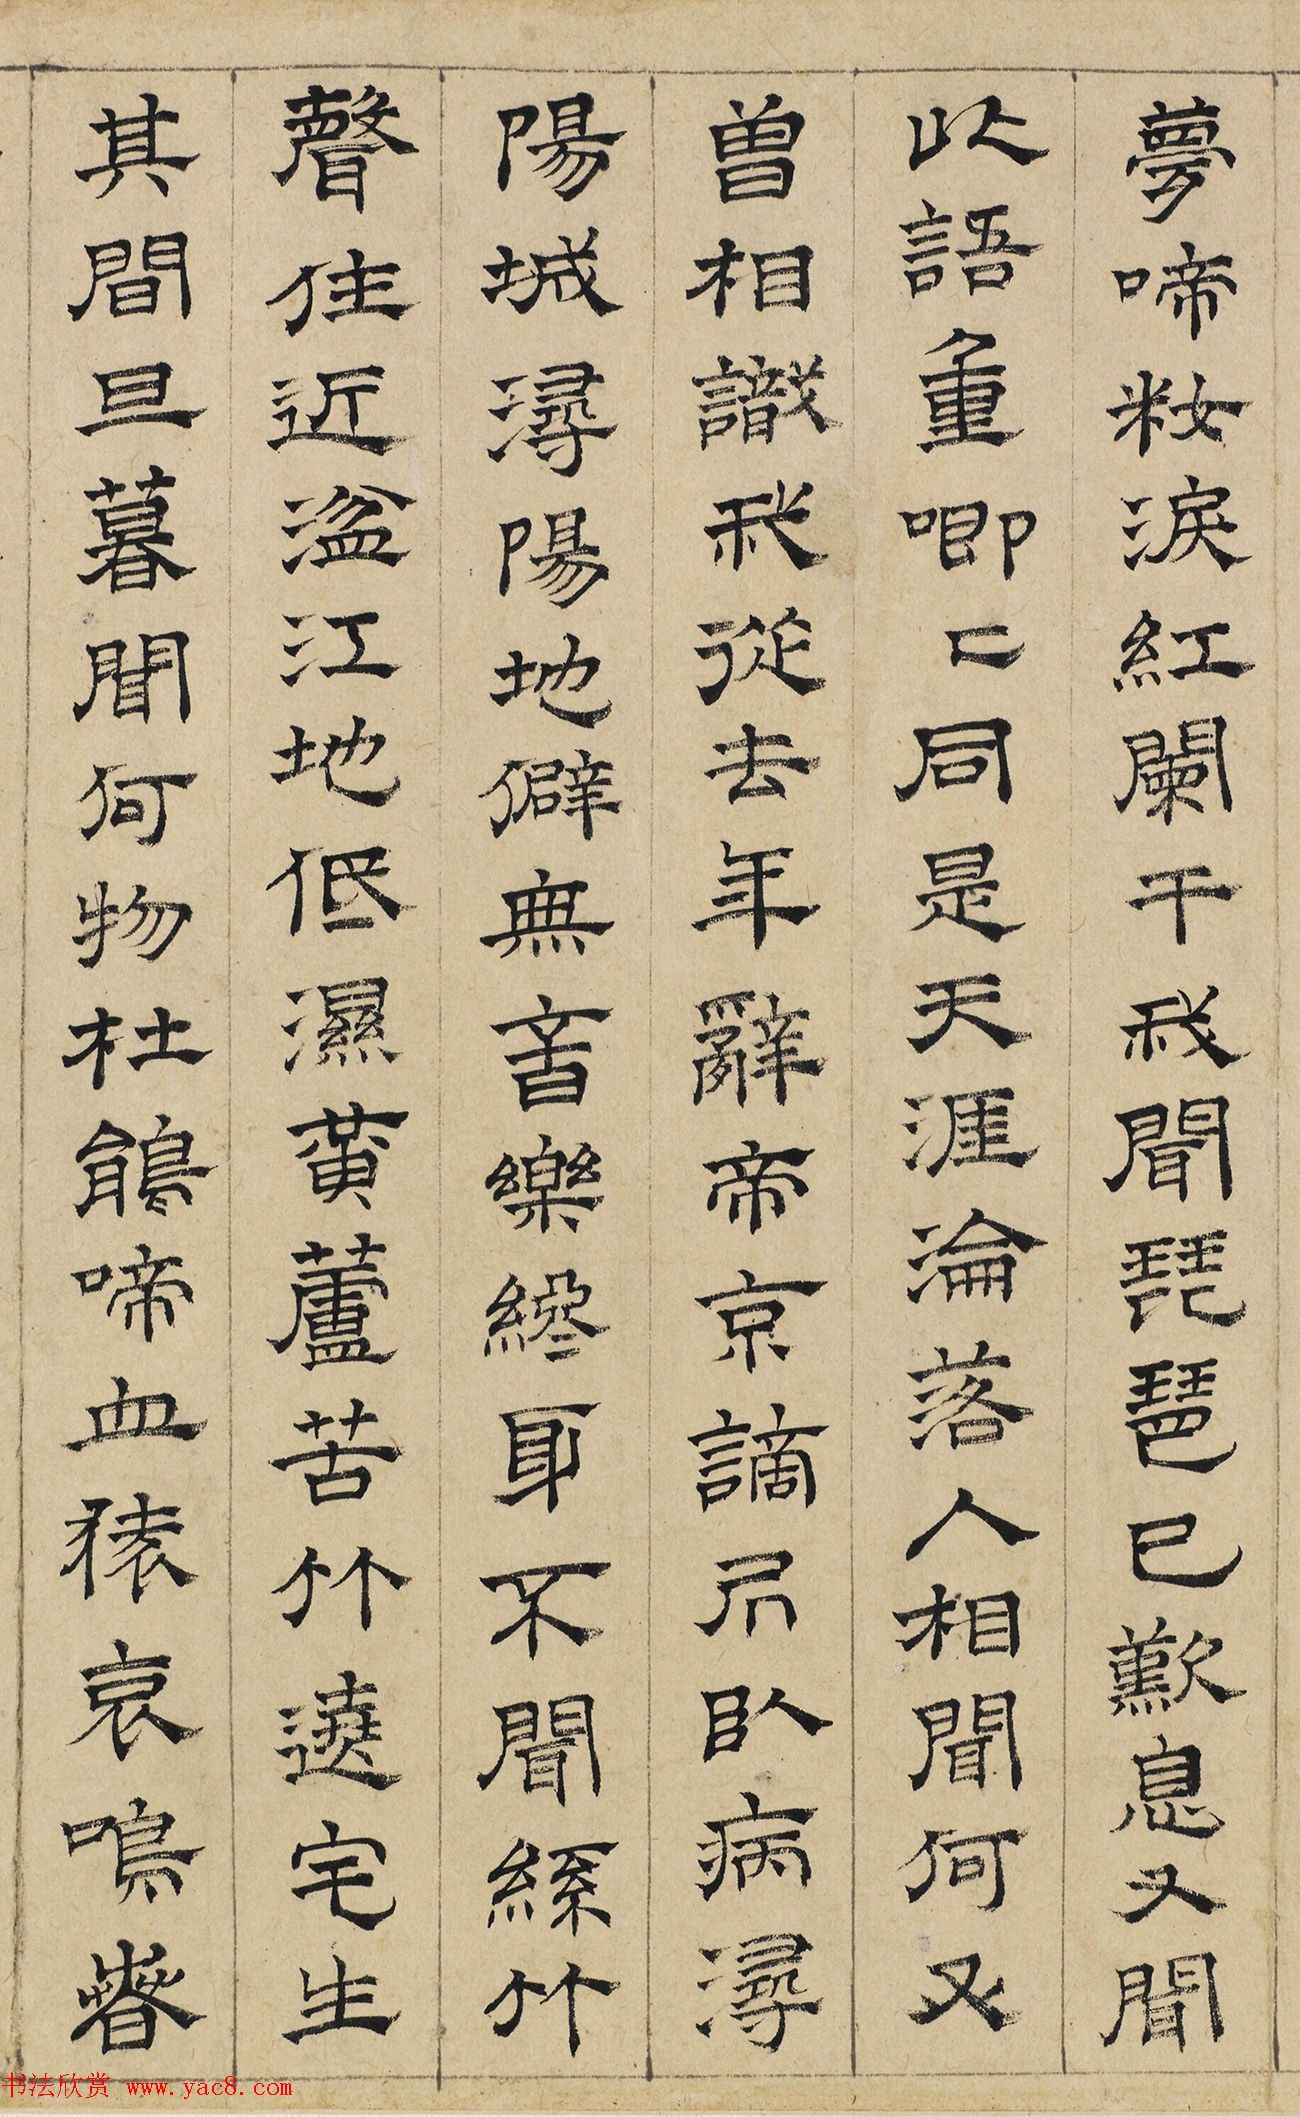 夢啼籹淚紅闌干我聞琵琶已歎息又聞
此語重唧〻同是天涯淪落人相聞何必
曾相識我從去年辭帝京謫凥臥病潯
陽城潯陽地僻無音樂終歲不聞絲竹
聲住近湓江地低濕黃蘆苦竹遶宅生
其間旦暮聞何物杜鵑啼血猿哀鳴春
书法欣赏 www.yac8.com